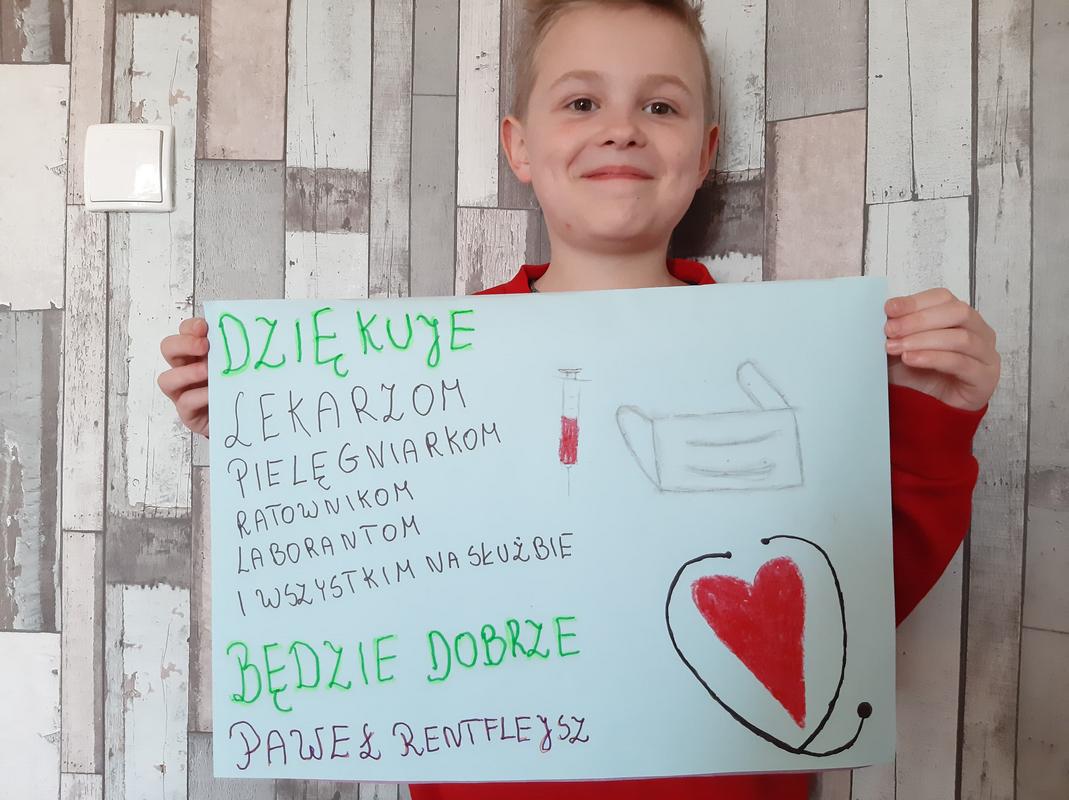 DZIĘKUJE
LEKARZOM
PIELĘGNIARKOM
RATOWNIKOM
LABORANTOM
I WSZYSTKIM NA SŁUŻBIE
BĘDZIE DOBRZE
PAWEŁ RENTFLEJSZ